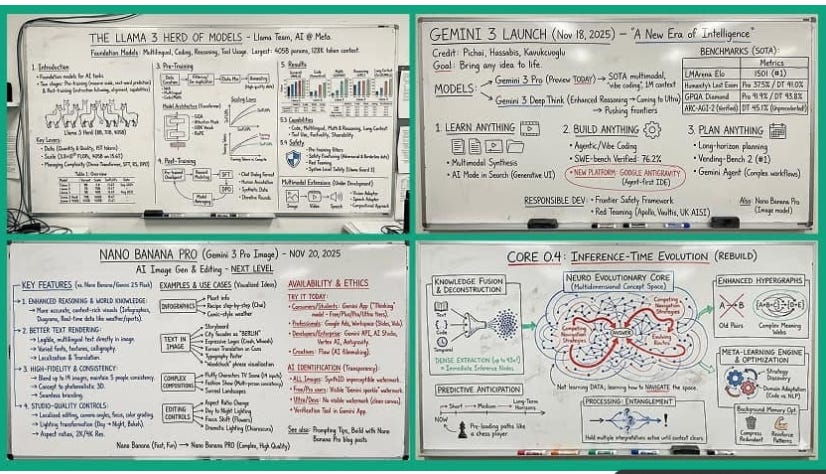 THE LLAMA 3 HERD OF MODELS - Llama Team, AI @ Meta.
Foundation Models: Multilingual, Coding, Reasoning, Tool Usage. Largest: 405B params, 128K token context.
1. Introduction
• Foundation models for AI tasks
Llama 3 Herd (8B, 70B, 405B)
Key Levers:
Table 1: Overview
3. Pre-Training
Data Mix
Annealing
Model Architecture (Transformer)
Scaling Laws
4. Post-Training
SFT
DPO
• Chat Dialog Format
• Human Annotation
• Synthetic Data
• Iterative Rounds
5. Results
5.3 Capabilities
• Code, Multilingual, Math & Reasoning, Long Context,
Tool Use, Factuality, Steerability
5.4 Safety
• Pre-training Filters
• Red Teaming
• System Level Safety (Llama Guard 3)
Multimodal Extensions (Under Development)
Image
Video
Speech
• Vision Adapter
• Speech Adapter
• Compositional Approach
GEMINI 3 LAUNCH (Nov 18, 2025) - "A New Era of Intelligence"
Credit: Pichai, Hassabis, Kavukcuoglu
Goal: Bring any idea to life.
MODELS:
Gemini 3 Pro (Preview TODAY) → SOTA multimodal,
"vibe coding", 1M context
Gemini 3 Deep Think (Enhanced Reasoning → Coming to Ultra)
→ Pushing frontiers
BENCHMARKS (SOTA):
Metrics
LMArena Elo 1501 (#1)
Humanity's Last Exam Pro 37.5% / DT 41.0%
GPQA Diamond Pro 91.9% / DT 93.8%
ARC-AGI-2 (Verified) DT 45.1% (Unprecedented)
1. LEARN ANYTHING
• Multimodal Synthesis
• AI Mode in Search (Generative UI)
2. BUILD ANYTHING
• Agentic/Vibe Coding
• SWE-bench Verified: 76.2%
• NEW PLATFORM: GOOGLE ANTIGRAVITY
(Agent-first IDE)
3. PLAN ANYTHING
• Long-horizon planning
• Vending-Bench 2 (#1)
• Gemini Agent (Complex workflows)
RESPONSIBLE DEV: • Frontier Safety Framework
• Red Teaming (Apollo, Vaultis, UK AISI)
Also: Nano Banana Pro
(Image model)
NANO BANANA PRO (Gemini 3 Pro Image) - NOV 20, 2025
AI Image Gen & Editing - NEXT LEVEL
KEY FEATURES (vs. Nano Banana/Gemini 2.5 Flash)
1. ENHANCED REASONING & WORLD KNOWLEDGE:
• More accurate, context-rich visuals (Infographics,
Diagrams, Real-time data like weather/sports).
2. BETTER TEXT RENDERING:
• Legible, multilingual text directly in image.
• Varied fonts, textures, calligraphy.
• Localization & Translation.
3. HIGH-FIDELITY & CONSISTENCY:
• Blend up to 14 images, maintain 5 people consistency.
• Concept to photorealistic 3D.
• Seamless branding.
4. STUDIO-QUALITY CONTROLS:
• Localized editing, camera angles, focus, color grading
• Lighting transformation (Day → Night, Bokeh).
• Aspect ratios, 2K/4K Res.
EXAMPLES & USE CASES (Visualized Ideas)
INFOGRAPHICS
Plant info
Recipe step-by-step (Chai)
Comic-style weather
TEXT IN IMAGE
Storyboard
City facades as "BERLIN"
Expressive Logos (Crash, Wheels)
Korean Translation on Cans
Typography Poster
"Woodchuck" phrase visualization
COMPLEX COMPOSITIONS
Fluffy Characters TV Scene (14 inputs)
Fashion Show (Multi-person consistency)
Surreal Landscapes
EDITING CONTROLS
Aspect Ratio Change
Day to Night Lighting
Focus Shift (Flowers)
Dramatic Lighting (Chiaroscuro)
Nano Banana (Fast, Fun) → Nano Banana PRO (Complex, High Quality)
AVAILABILITY & ETHICS
TRY IT TODAY:
• Consumers/Students: Gemini App ("Thinking"
model - Free/Plus/Pro/Ultra tiers).
• Professionals: Google Ads, Workspace (Slides, Vids).
• Developers/Enterprise: Gemini API, AI Studio,
Vertex AI, Antigravity.
• Creatives: Flow (AI filmmaking).
AI IDENTIFICATION (Transparency)
• ALL Images: SynthID imperceptible watermark.
• Free/Pro users: Visible "Gemini sparkle" watermark.
• Ultra/Devs: No visible watermark (clean canvas).
• Verification Tool in Gemini App.
See also: Prompting Tips, Build with Nano
Banana Pro blog posts
CORE 0.4: INFERENCE-TIME EVOLUTION (REBUILD)
KNOWLEDGE FUSION
& DECONSTRUCTION
Text
Code
Temporal
DENSE EXTRACTION (up to 93x!)
= Immediate Inference Nodes
PREDICTIVE ANTICIPATION
Short → Medium → Long-Term Horizons
NOW
Pre-loading paths like
a chess player
NEURO EVOLUTIONARY CORE
(Multidimensional Concept Space)
Competing Navigation Strategies
Competing Navigation Strategies
ANSWER
Evolving Routes
Not learning DATA; learning how to NAVIGATE the space.
PROCESSING: ENTANGLEMENT
Hold multiple interpretations active until context clears
ENHANCED HYPERGRAPHS
A B
Old Pairs
Complex Meaning
Webs
META-LEARNING ENGINE
& OPTIMIZATION
Strategy
Discovery
Domain Adaptation
(Code vs NLP)
Background Memory Opt.
Compress
Redundant
Reinforce
Patterns